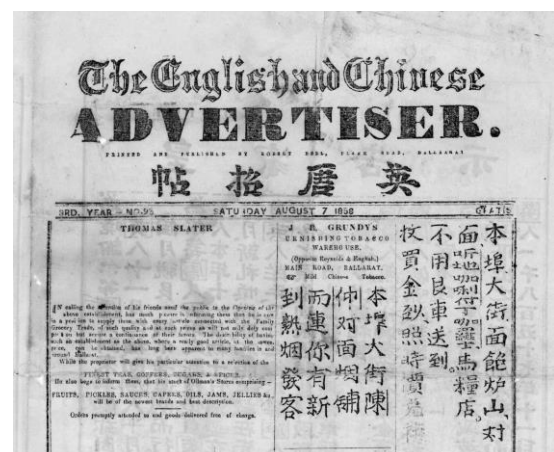 The English and Chinese
ADVERTISER.
PRINTED AND PUBLISHED BY ROBERT BELL, PLANK ROAD, BALLARAT
英唐招帖
3RD. YEAR - NO. 95 SATURDAY AUGUST 7 1858 GRATIS
THOMAS SLATER
IN calling the attention of his friends and the public to the Opening of the
above establishment, has much pleasure in informing them that he is now
in a position to supply them with every article connected with the Family
Grocery Trade, of such quality and at such prices as will not only
but secure a continuance of their favors. The desirability of having
such an establishment as the above, where a really good article, in the
can be obtained, has long been apparent to many families in and
around Ballarat.
While the proprietor will give his particular attention to a selection of the
FINEST TEAS, COFFEES, SUGARS, & SPICES,
He also begs to inform them, that his stock of Oilman's Stores comprising -
FRUITS, PICKLES, SAUCES, CAPERS, OILS, JAMS, JELLIES &c,
will be of the newest brands and best description.
Orders promptly attended to and goods delivered free of charge.
GRUNDYS
FURNISHING TOBACCO
WAREHOUSE.
(Opposite Reynolds & English.)
MAIN ROAD, BALLARAT.
Mild Chinese Tobacco.
本埠大街陳
仲対面烟舖
而連你有新
到熱烟發客
本埠大街面飽炉山对
馬糧店。
不用艮車送到
收買金砂照時價